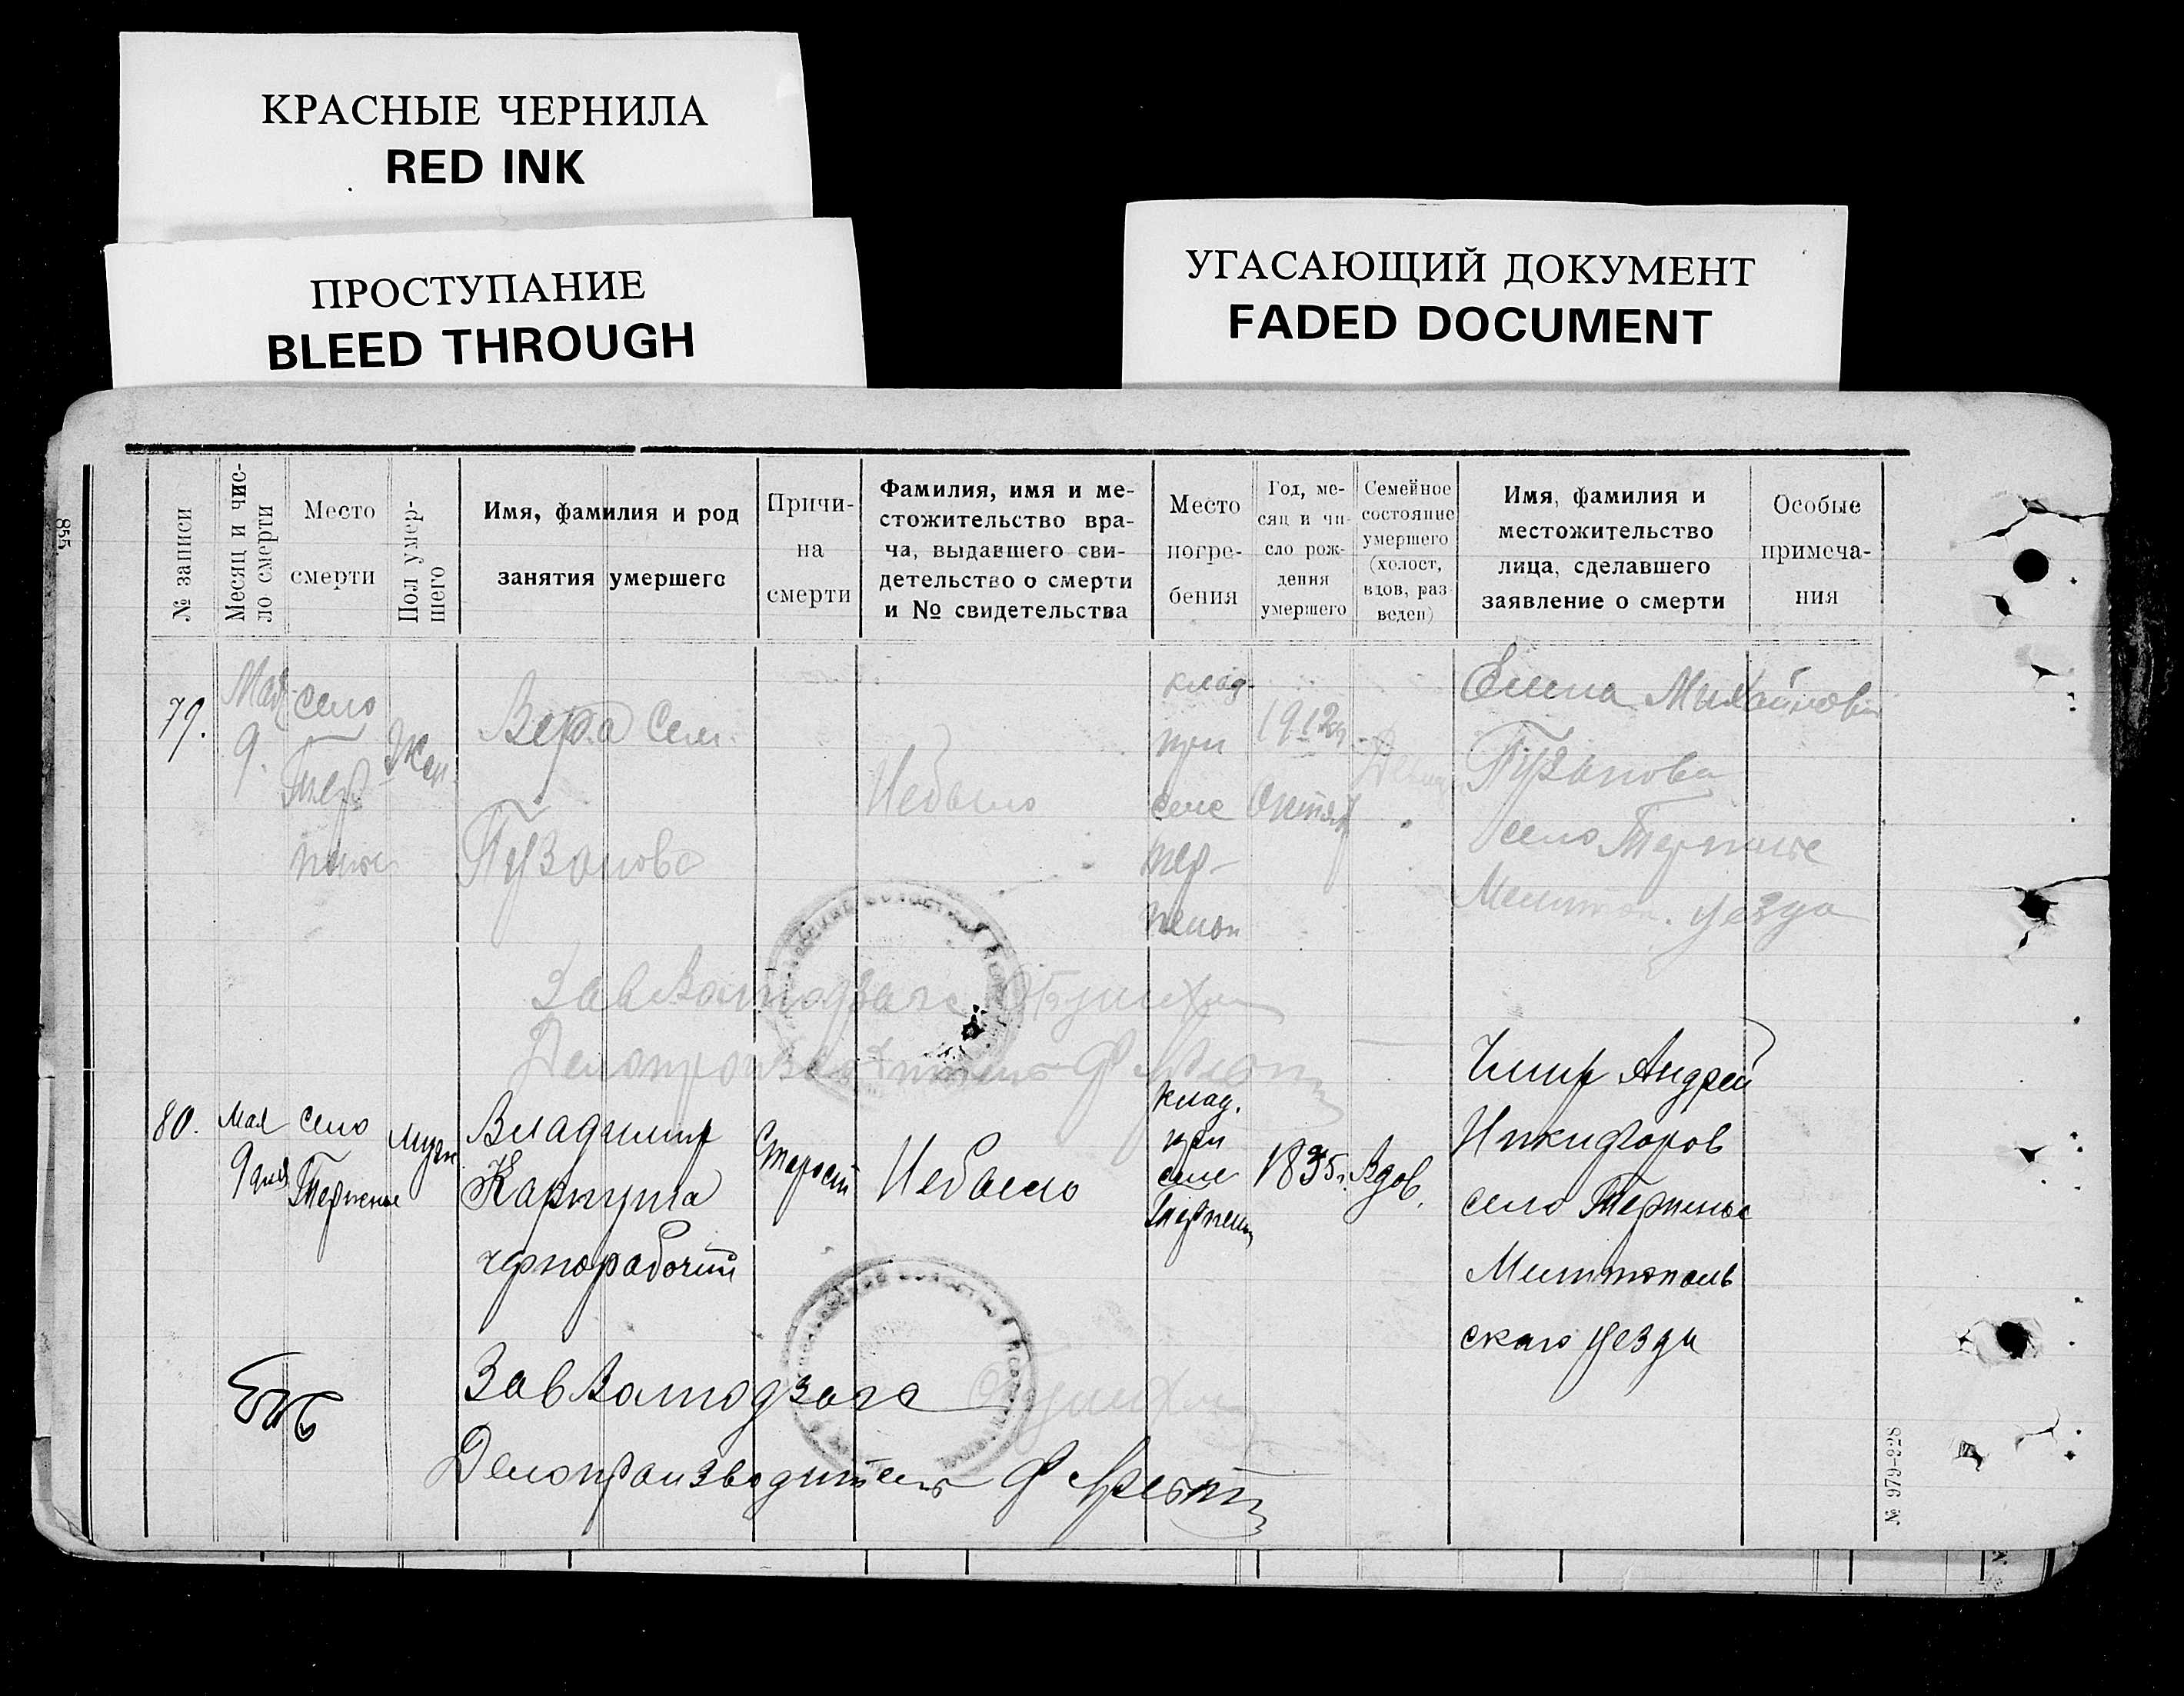 КРАСНЫЕ ЧЕРНИЛА
RED INK
ПРОСТУПАНИЕ
BLEED THROUGH
УГАСАЮЩИЙ ДОКУМЕНТ
FADED DOCUMENT
855
№ записи
Месяц и чис-
ло смерти
Место
смерти
Пол умер-
шего
Имя, фамилия и род
занятия умершего
Причи-
на
смерти
Фамилия, имя и ме-
стожительство вра-
ча, выдавшего сви-
детельство о смерти
и № свидетельства
Место
погре-
бения
Год, ме-
сяц и чи-
сло рож-
дения
умершего
Семейное
состояние
умершего
(холост,
вдов, раз
веден)
Имя, фамилия и
местожительство
лица, сделавшего
заявление о смерти
Особые
примеча-
ния
79.
Мая
9.
село
Тер
пение
Жен.
Вера Сем.
Пузанова
Небыло
клад.
при
селе
тер-
пении
1912
Октяб
Елена Михайлова
Пузанова
село Терпение
Мелитоп. уезда
Завзаподзагс
Делопроизводитель
80.
Мая
9 дня
село
Терпение
Муж
Владимир
Карпуша
чернорабочий
Старость
Небыло
клад.
при
селе
Терпении
1835г.
Вдов.
Чмир Андрей
Никифоров
село Терпение
Мелитополь
скаго уезда
Завзаподзагс
Делопроизводитель
№ 979-928